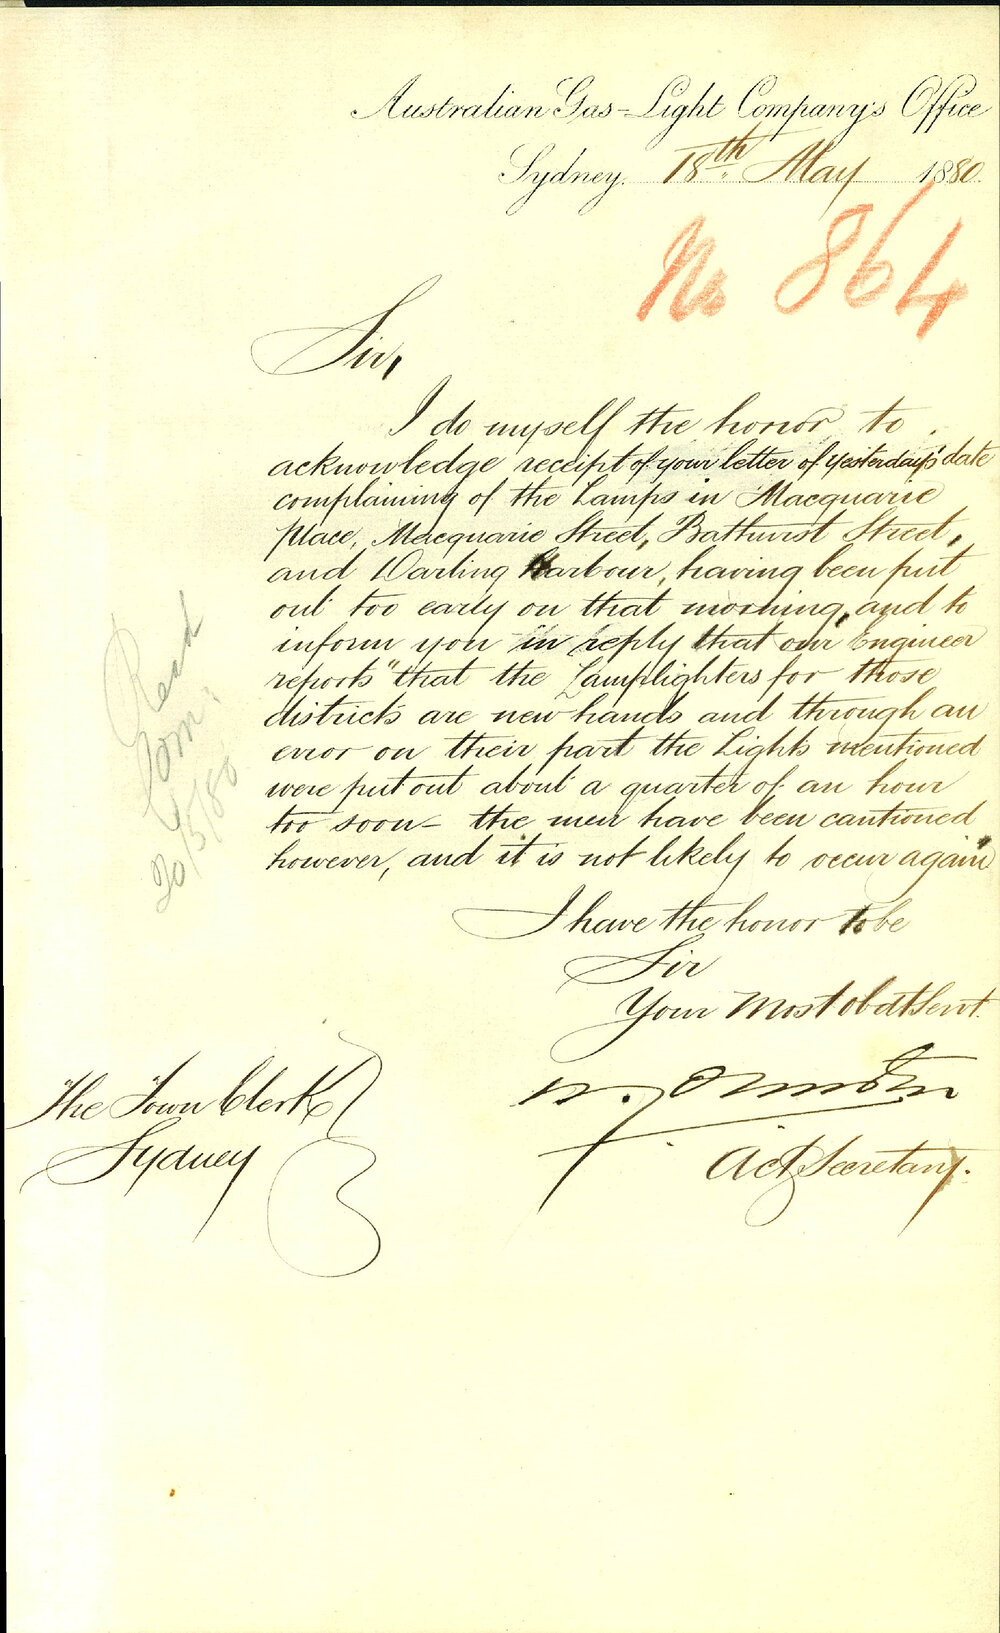 Australian Gas-Light Company's Office
Sydney. 18th May 1880.
No 864
Sir,
I do myself the honor to
acknowledge receipt of your letter of yesterday's date
complaining of the Lamps in Macquarie
Place, Macquarie Street, Bathurst Street,
and Darling Harbour, having been put
out too early on that morning, and to
inform you in reply that our Engineer
reports "that the Lamplighters for those
districts are new hands and through an
error on their part the Lights mentioned
were put out about a quarter of an hour
too soon - the men have been cautioned
however, and it is not likely to occur again"
I have the honor to be
Sir
Your Most obdt Servt.
Act Secretary.
The Town Clerk
Sydney
Read
Com:
20/5/80